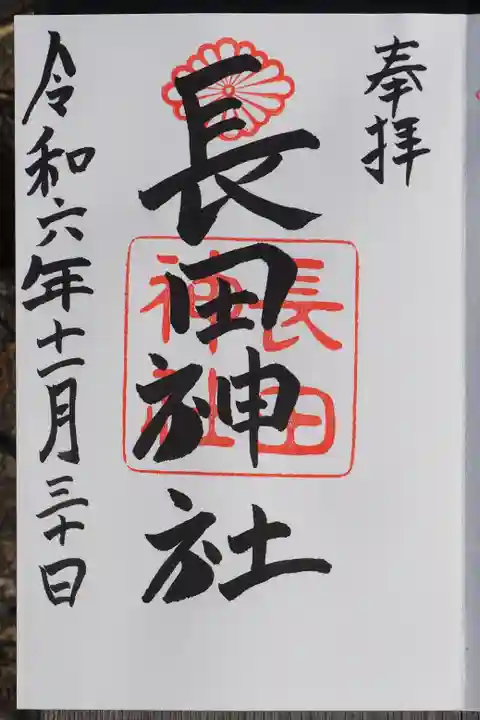 奉拝
長田神社
長田
神社
令和六年十一月三十日